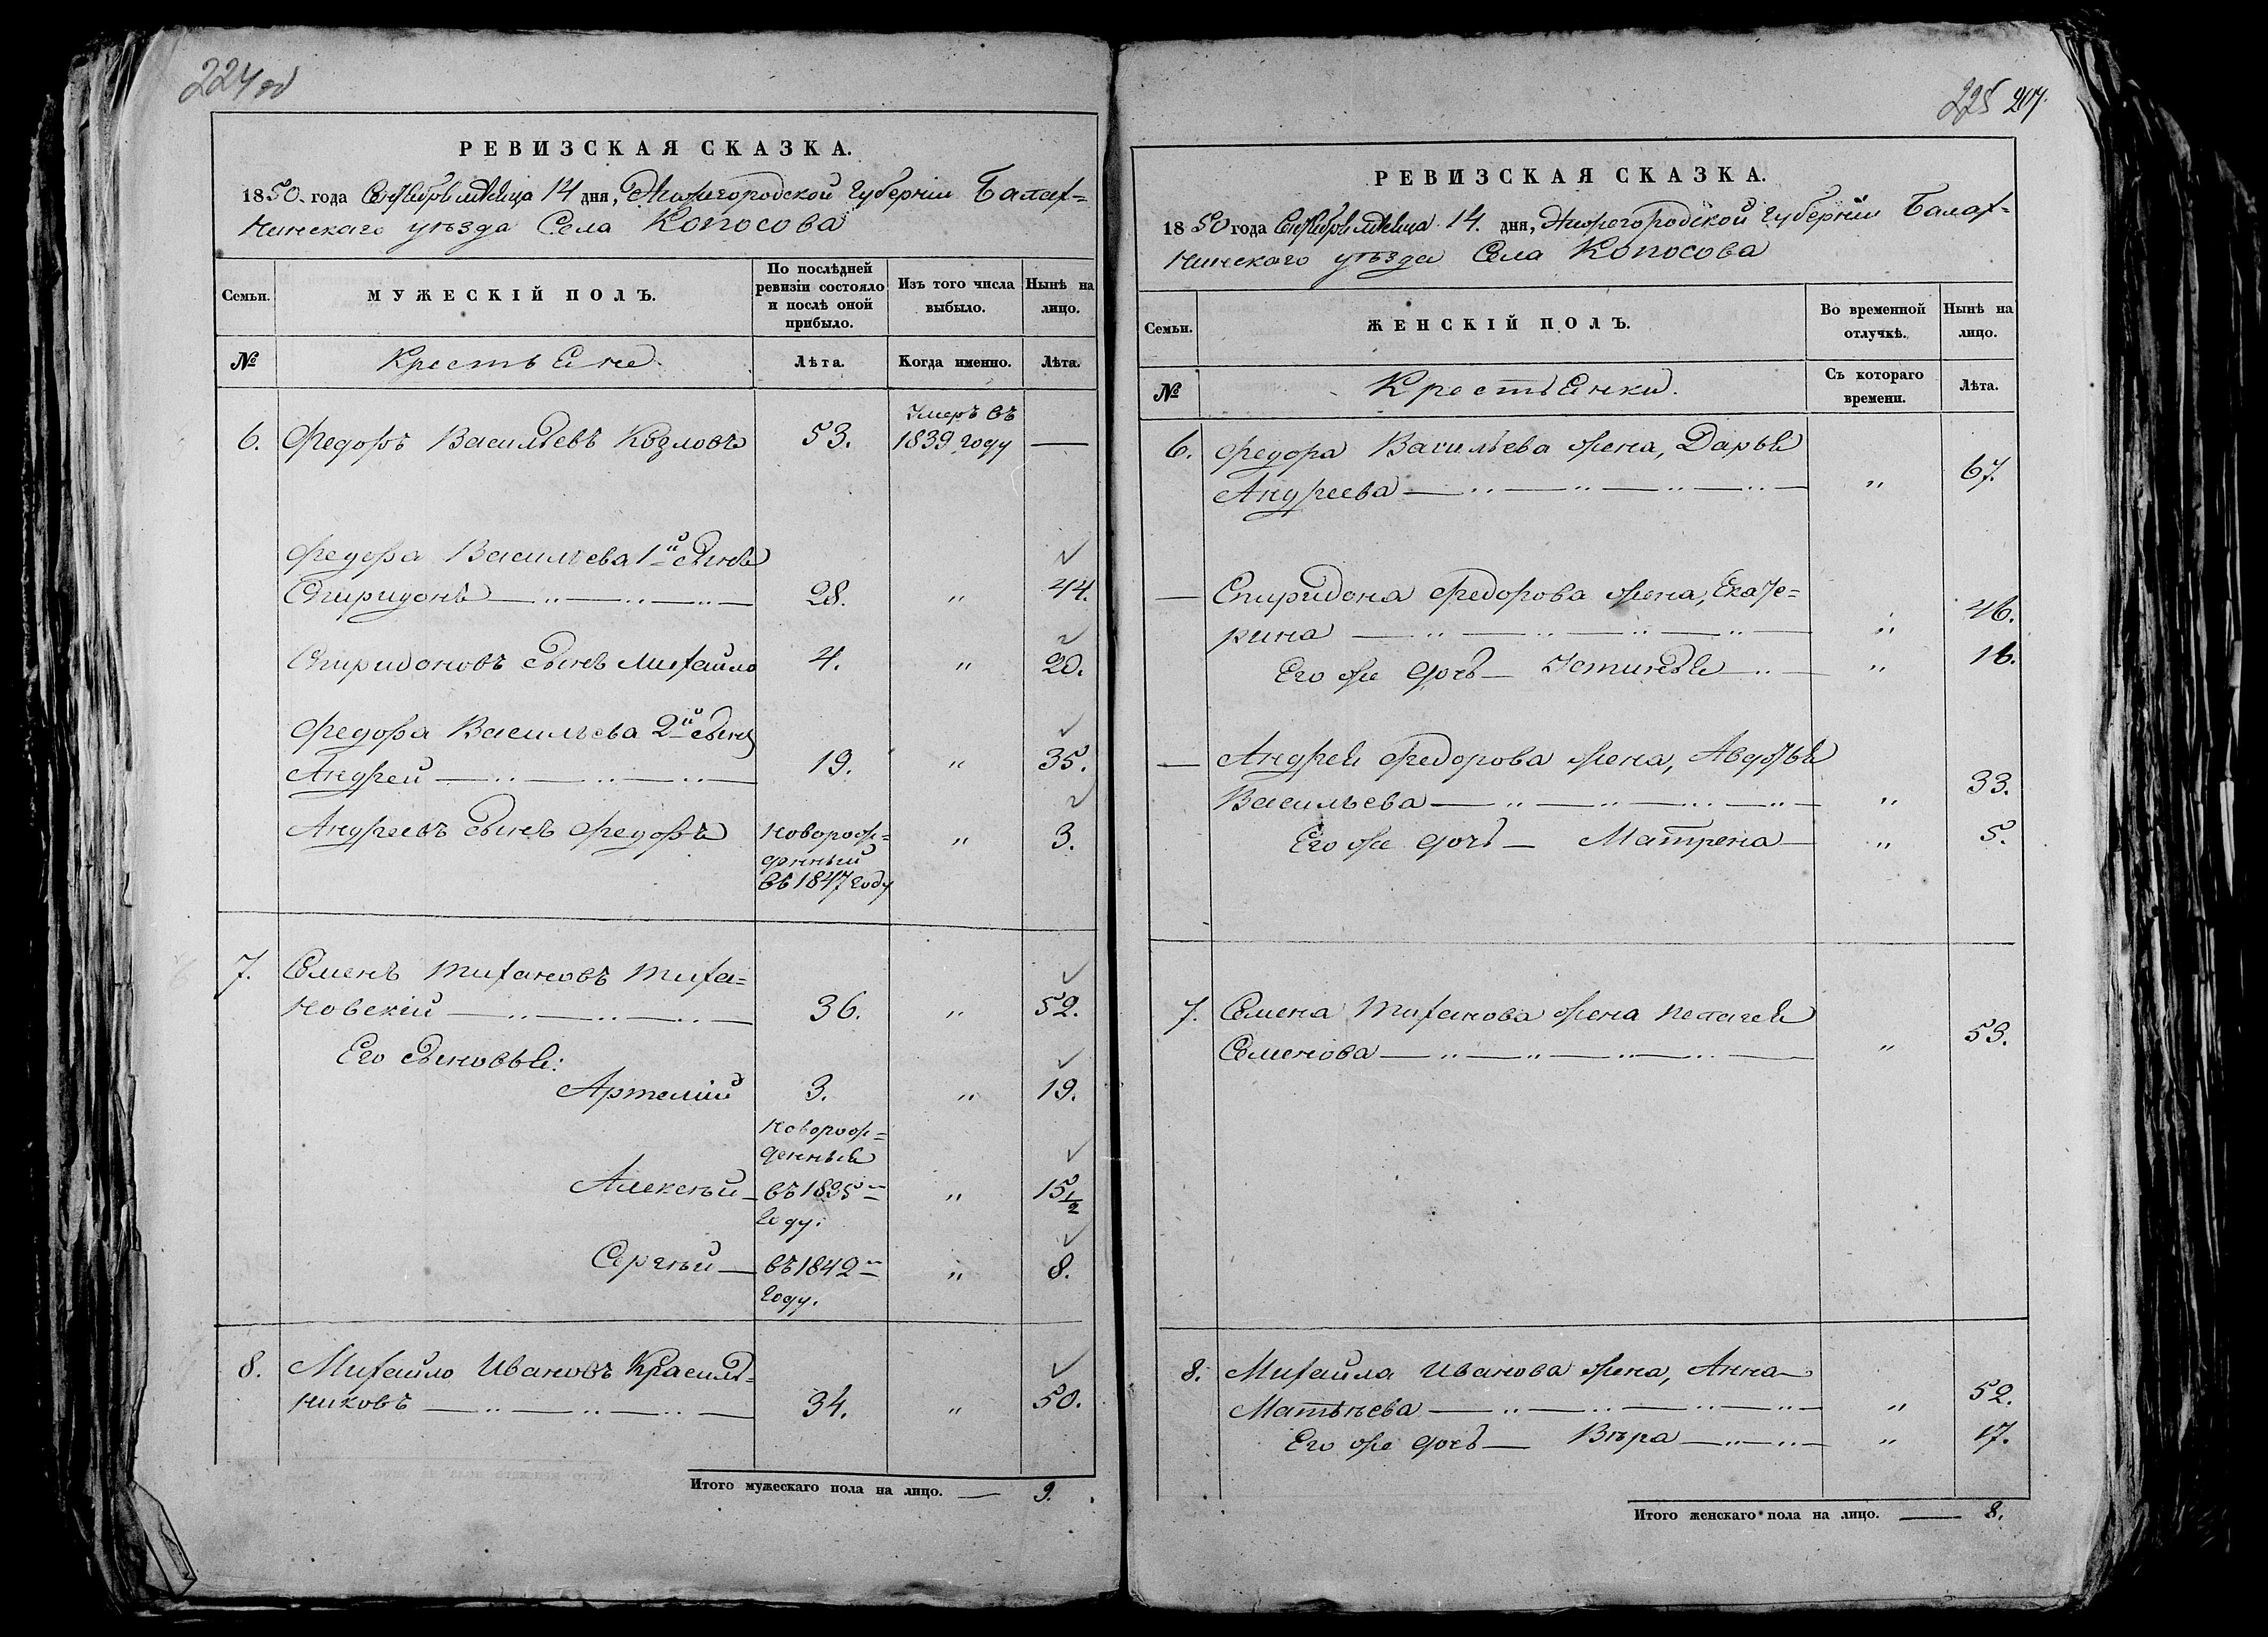 224 об
РЕВИЗСКАЯ СКАЗКА.
1850 года Сентября мѣсяца 14 дня, Нижегородской губерніи Балах-
нинскаго уѣзда Села Копосова
Семьи.
МУЖЕСКІЙ ПОЛЪ.
По послѣдней
ревизіи состояло
и послѣ оной
прибыло.
Изъ того числа
выбыло.
Нынѣ на
лицо.
№
Крестьяне
Лѣта.
Когда именно.
Лѣта.
6. Федоръ Васильевъ Козловъ 53. Умеръ въ
1839 году —
Федора Васильева 1й сынъ
Спиридонъ 28. " 44.
Спиридоновъ сынъ Михайло 4. " 20.
Федора Васильева 2й сынъ
Андрей 19. " 35.
Андреевъ сынъ Федоръ новорож- " 3.
денный
въ 1847 году
7. Семенъ Тихановъ Тиха-
новскій 36. " 52.
Его сыновья:
Артемій 3. " 19.
новорож-
денный
Алексѣй — въ 1835м " 15 1/2
году.
Сергѣй — въ 1842м " 8.
году.
8. Михайло Ивановъ Красиль-
никовъ 34. " 50.
Итого мужескаго пола на лицо. — 9.
225 207.
РЕВИЗСКАЯ СКАЗКА.
1850 года Сентября мѣсяца 14. дня, Нижегородской губерніи Балах-
нинскаго уѣзда Села Копосова
Семьи.
ЖЕНСКІЙ ПОЛЪ.
Во временной
отлучкѣ.
Нынѣ на
лицо.
№
Крестьянки.
Съ котораго
времени.
Лѣта.
6. Федора Васильева жена, Дарья
Андреева " 67.
— Спиридона Федорова жена, Екате-
рина " 46.
Его же дочь — Устинья " 16.
— Андрея Федорова жена, Авдотья
Васильева " 33.
Его же дочь — Матрена " 5.
7. Семена Тиханова жена Пелагея
Семенова " 53.
8. Михайла Иванова жена, Анна
Матвѣева " 52.
Его же дочь — Вѣра " 17.
Итого женскаго пола на лицо. — 8.